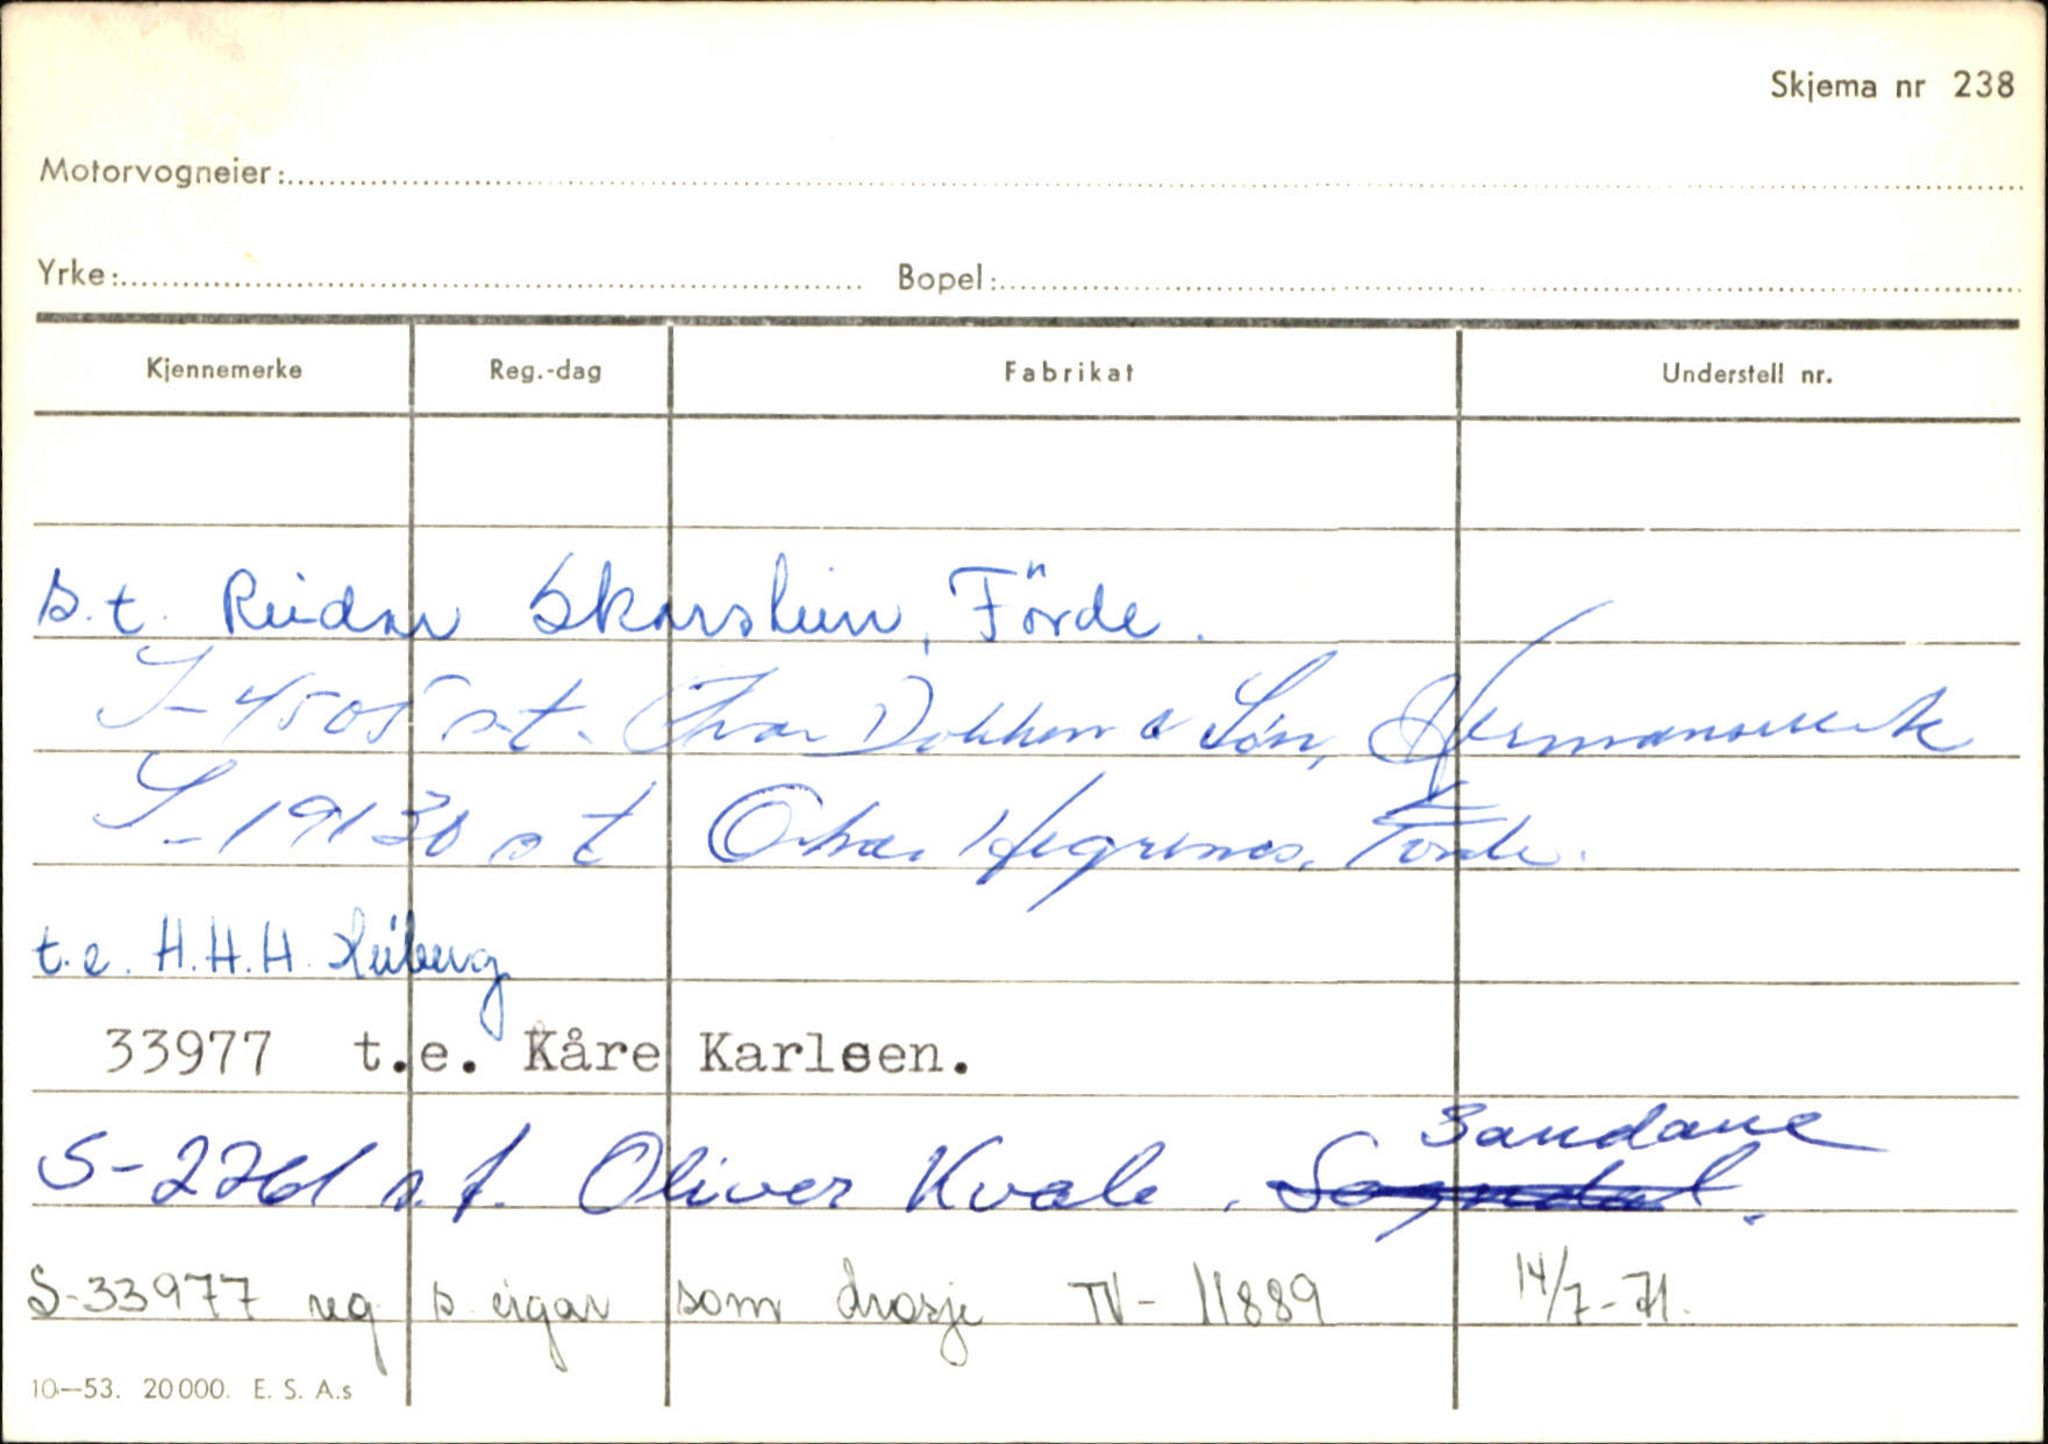 Skjema nr 238
Motorvogneier:
Yrke: Bopel:
Kjennemerke Reg.-dag Fabrikat Understell nr.
s.t. Reidar Skarstein, Förde.
S-4505 s.t. Ivar Dokken & Søn, Hermansverk
S-19130 s t Hegrenes, Förde.
t.e. H.H.H. Heiberg
33977 t.e. Kåre Karlsen.
Sandane
S-2261 s.t. Oliver Kvale, Sogndal.
S-33977 reg s eigar som drosje TV- 11889 14/7-71.
10—53. 20000. E. S. A.s